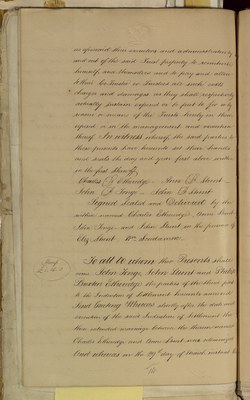 as aforesaid their executors and administrators by
and out of the said Trust property to reimburse
himself and themselves and to pay and allow
to his Co Trustee or Trustees all such costs
charges and damages as they shall respectively
actually sustain expend or be put to for or by
reason or means of the Trusts hereby in them
reposed or in the management and execution
thereof In witness whereof the said parties to
these presents have hereunto set their hands
and seals the day and year first above written
in the first
Charles Etheridge - Anna Shunt
John Tonge - John Shunt
Signed Sealed and Delivered by the
within named Charles Etheridge Anna Shunt
John Tonge and John Shunt in the presence of
Eliz Shunt Wm
To all to whom these Presents shall
come John Tonge, John Shunt and
Etheridge the parties of the third part
to the Indenture of Settlement hereunto annexed
Send Greeting Whereas shortly after the date and
execution of the said Indenture of Settlement the
then intended marriage between the therein named
Charles Etheridge and Anna Shunt was solemnized
And whereas on the 29th day of